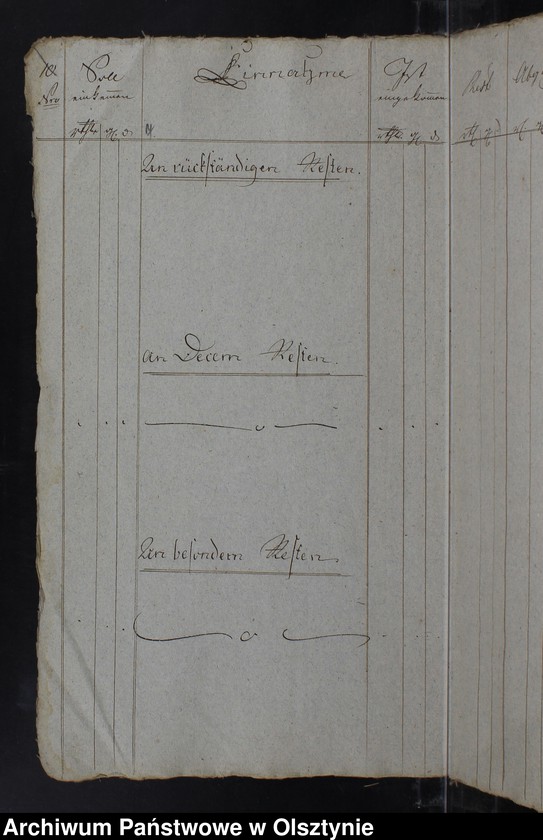 No
Soll
einkommen
rthl. gr. d.
Einnahme
Ist
eingekommen
rthl. gr. d.
Rest
Abg
An rückständigen Resten.
An Decem Resten.
An besondern Resten.
Archiwum Państwowe w Olsztynie